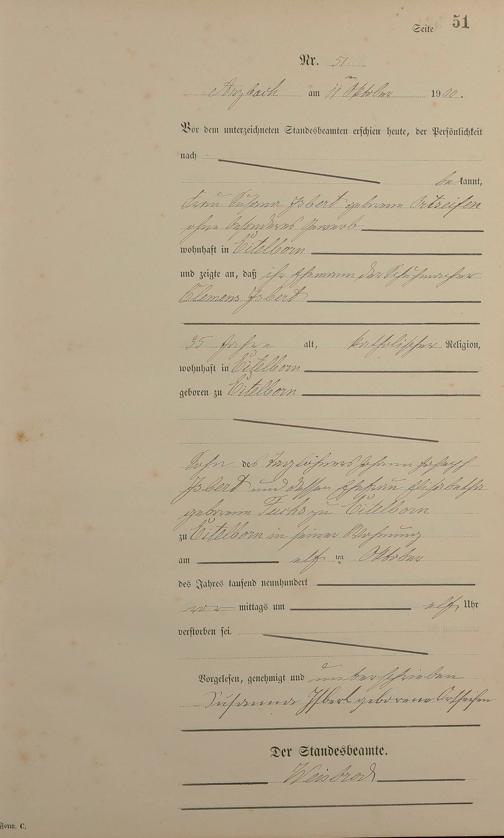 Seite 51
Nr. 51
Arzbach am 11 ten Oktober 1900.
Vor dem unterzeichneten Standesbeamten erschien heute, der Persönlichkeit
nach
be kannt,
Frau Susanna Isbert geborene Ortseifen
ohne besonderes Gewerb
wohnhaft in Eitelborn
und zeigte an, daß ihr Ehemann, der Schuhmacher
Clemens Isbert
35 Jahre alt, katholischer Religion,
wohnhaft in Eitelborn
geboren zu Eitelborn
Sohn des Taglöhners Johann Joseph
Isbert und dessen Ehefrau Elisabetha
geborene Fuchs zu Eitelborn
zu Eitelborn in seiner Wohnung
am elf ten Oktober
des Jahres tausend neunhundert
vor mittags um elf Uhr
verstorben sei.
Vorgelesen, genehmigt und unterschrieben
Susanna Isbert geborene Ortseifen
Der Standesbeamte.
Weisbrod
Form. C.